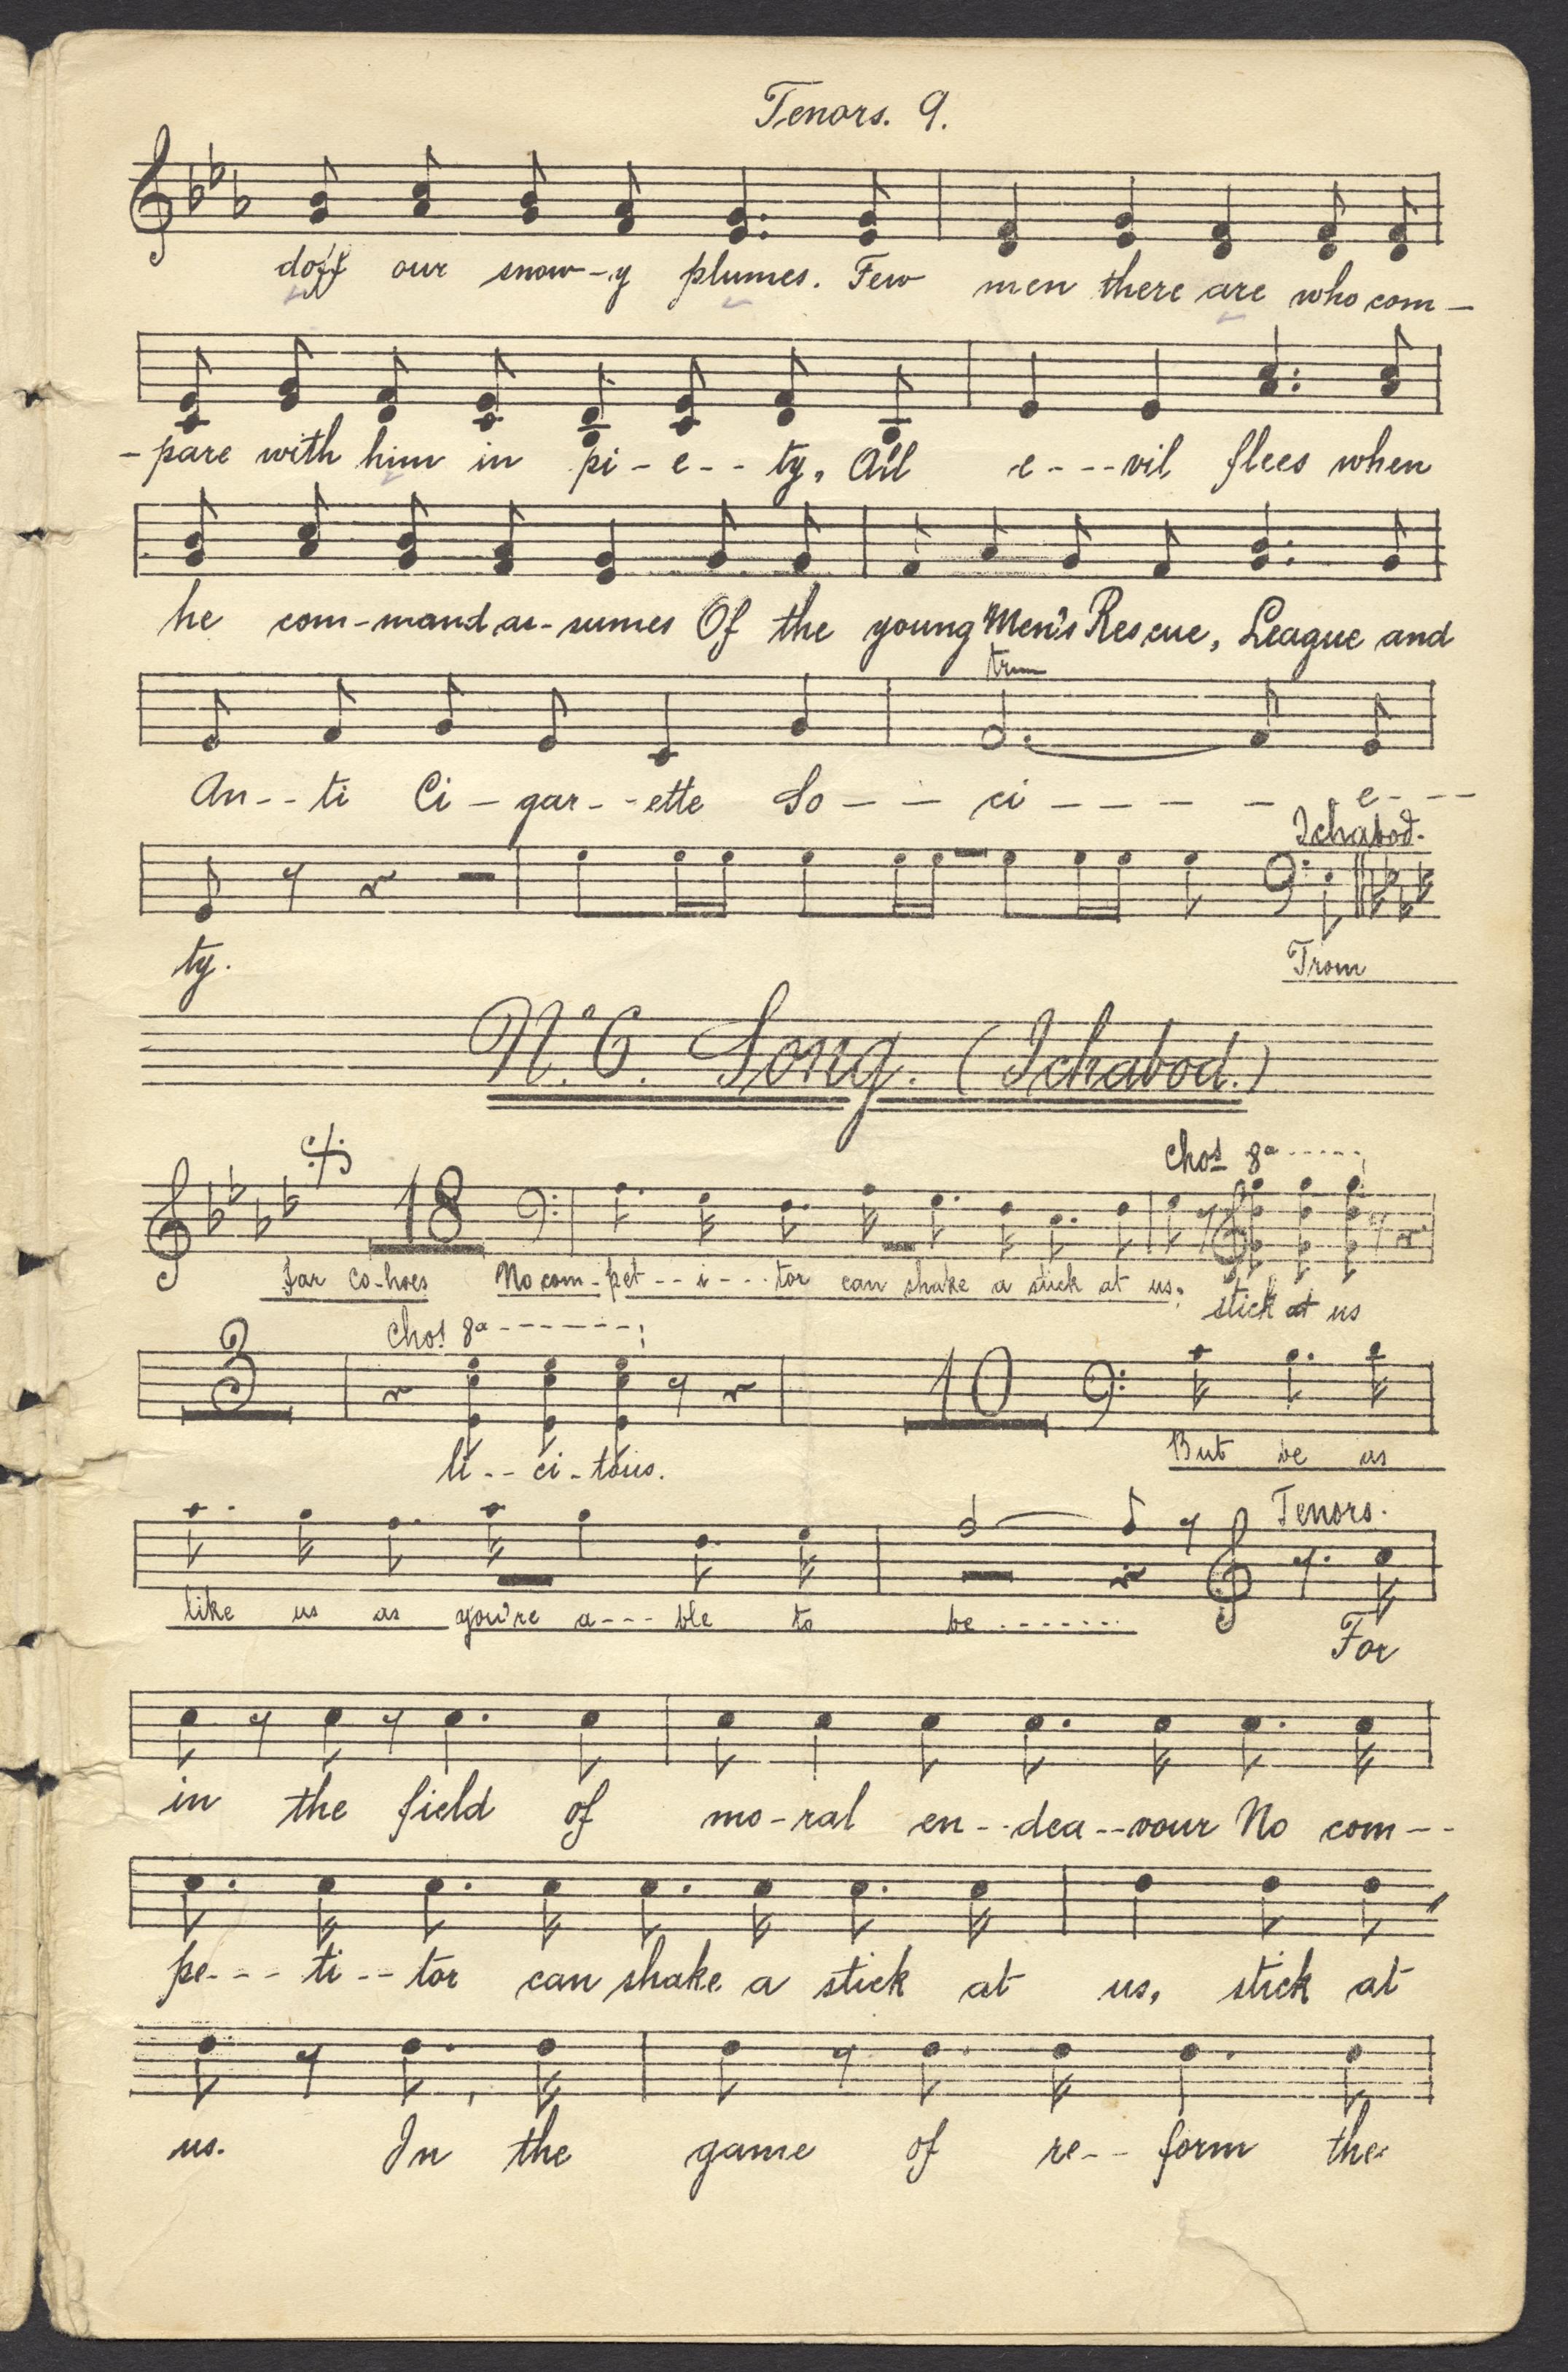 Tenors. 9.
doff our snow-y plumes. Few men there are who com-
-pare with him in pi-e--ty, All e---vil flees when
he com-mand as-sumes Of the young Men's Rescue, League and
tr
An--ti Ci-gar--ette So-- ci ---- e---
Ichabod.
ty. From
No 6. Song. (Ichabod.)
Chos 8a-----
18
far Co-hoes No com-pet--i---tor can shake a stick at us, stick at us
Chos 8a-------
3 10
li--ci-tous. But be as
Tenors.
like us as you're a---ble to be------- For
in the field of mo-ral en--dea--vour No com--
pe---ti--tor can shake a stick at us, stick at
us. In the game of re--form the